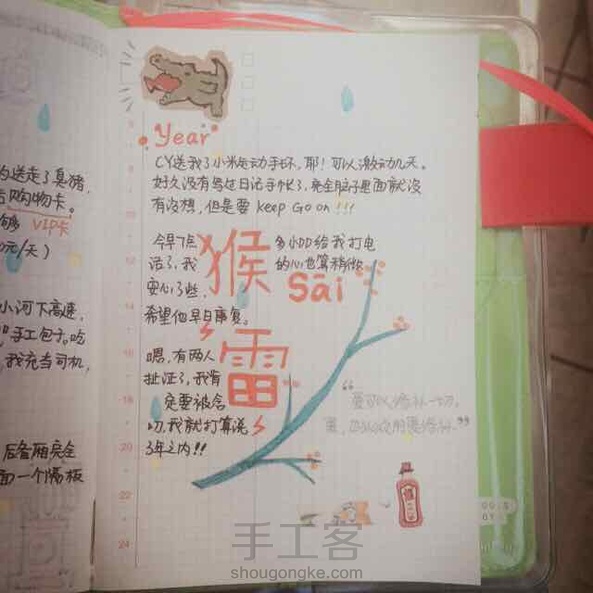 送走了臭猪,
购物卡。
够 VIP卡
元/天)
小河下高速,
手工包子。吃
我充当司机,
后备厢完全
面一个隔板
Year
CY送我了小米运动手环,耶!可以激动几天。
好久没有写过日记手帐了,完全脑子里面就没
有设想,但是要 Keep Go on!!!
今早7点多小DD给我打电
话了,我的心也算稍微
安心了些,
猴
Sāi
希望他早日康复。
雷
嗯,有两人
扯证了,我肯
定要被念
叨,我就打算说
3年之内!!
8
10
12
14
16
18
20
22
24
手工客
shougongke.com